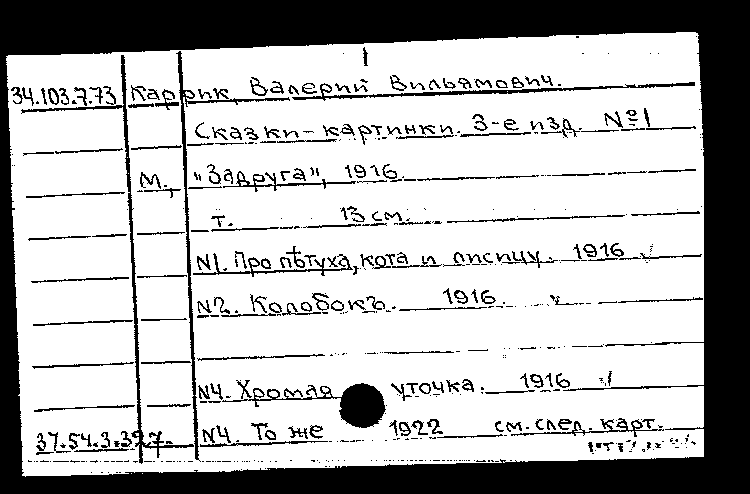 34.103.7.73 Каррик, Валерий Вильямович.
Сказки-картинки. 3-е изд. №1
М., "Задруга", 1916.
т. 13 см.
N1. Про пѣтуха, кота и лисицу. 1916 √
N2. Колобокъ. 1916. "
N4. Хромая уточка. 1916 √
37.54.3.397. N4. То же 1922 см. след. карт.